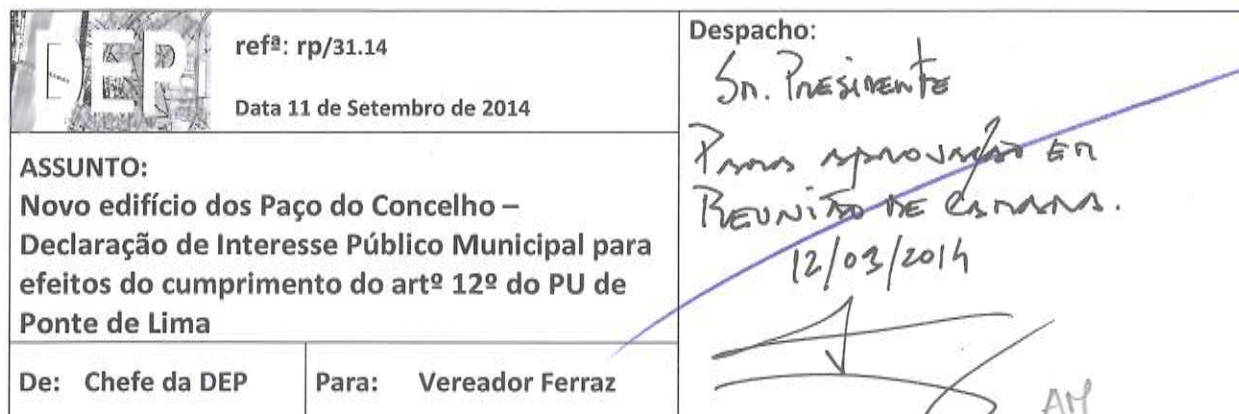 DEP
refª: rp/31.14
Data 11 de Setembro de 2014
ASSUNTO:
Novo edifício dos Paço do Concelho –
Declaração de Interesse Público Municipal para
efeitos do cumprimento do artº 12º do PU de
Ponte de Lima
De: Chefe da DEP
Para: Vereador Ferraz
Despacho:
Sr. Presidente
Para aprovação em
Reunião de Câmara.
12/09/2014
AM